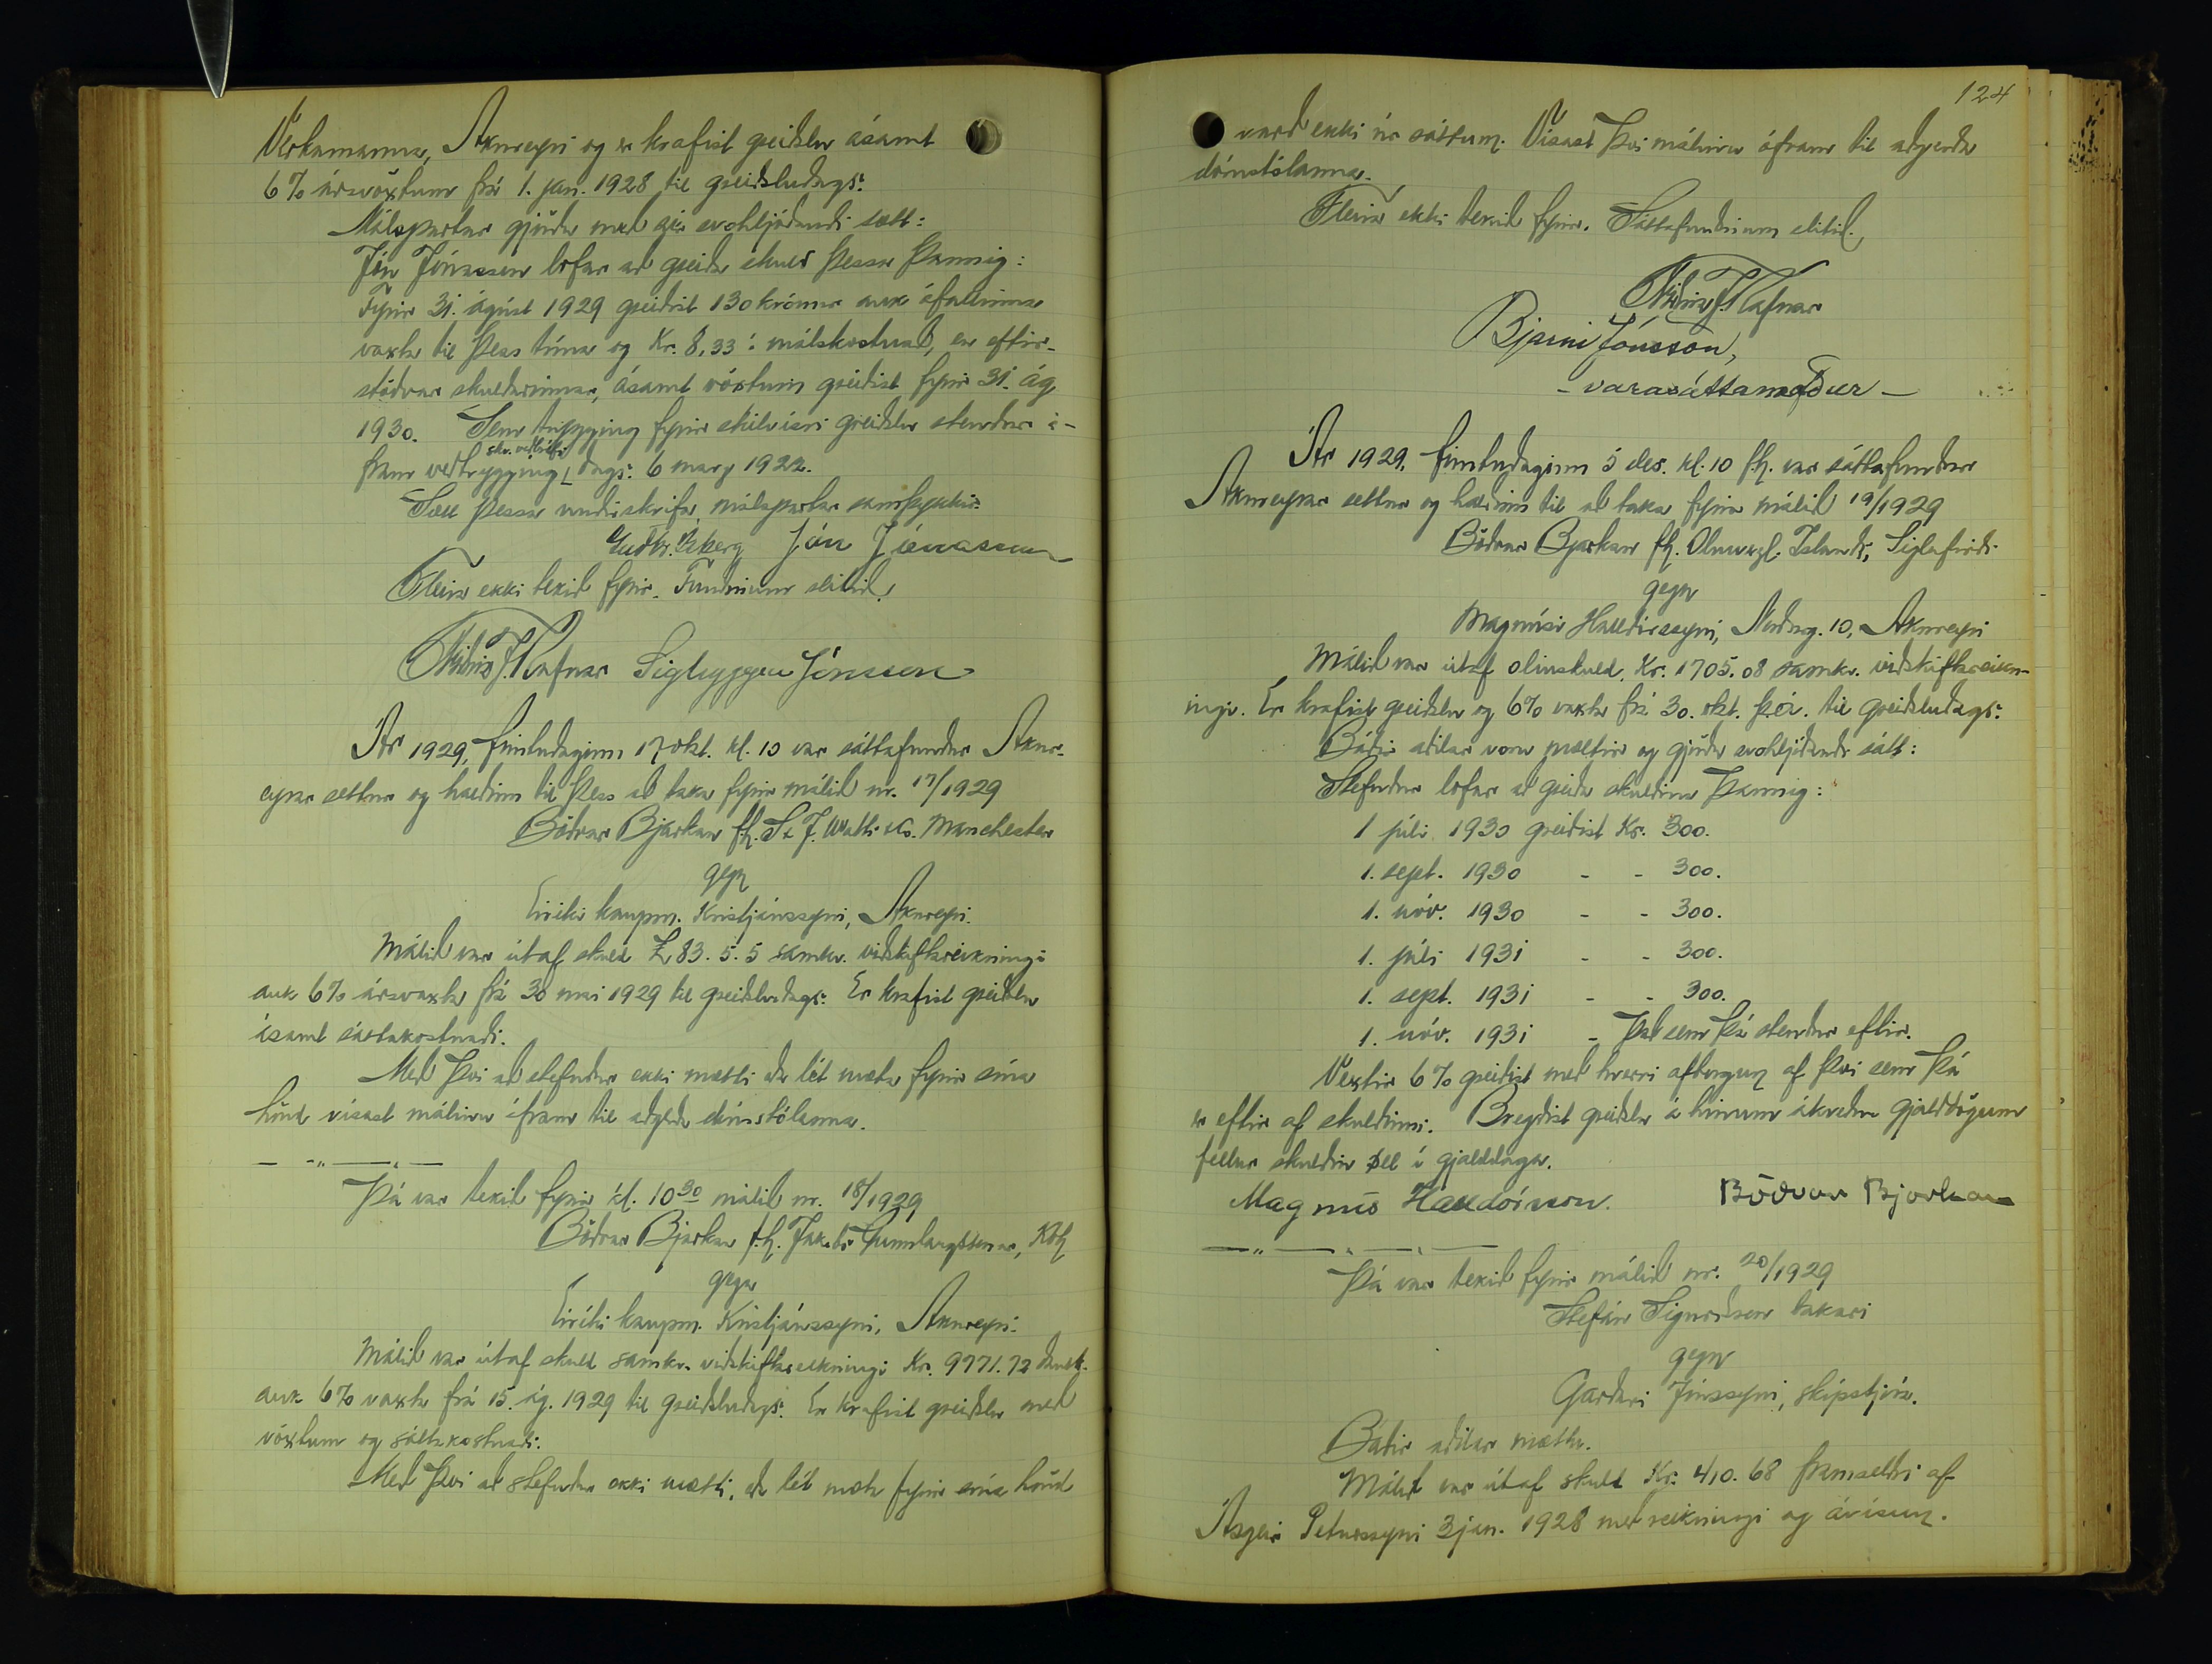 Verkamanna, Akureyri og er krafist greiðslu ásamt
6% ársvöxtum frá 1. jan. 1928 til greiðsludags.
Málspartar gjörðu með sér svohljóðandi sætt:
Jón Jónasson lofar að greiða skuld þessa þannig:
Fyrir 31. ágúst 1929 greiðist 130 krónur auk áfallinna
vaxta til þess tíma og Kr. 8,33 í málskostnað, en eftir-
stöðvar skuldarinnar, ásamt vöxtum greiðist fyrir 31. ág.
1930. Sem trygging fyrir skilvísri greiðslu stendur á-
fram veðtrygging skv. veðbréfi dags. 6 marz 1922.
Sætt þessa undirskrifa málspartar samþykkir
Guðbr. Ísberg Jón Jónasson
Fleira ekki tekið fyrir. Fundinum slitið.
Friðrik J. Rafnar Sigtryggur Jónsson
Ár 1929, fimtudaginn 17 okt. kl. 10 var sáttafundur Akur-
eyrar settur og haldinn til þess að taka fyrir málið nr. 17/1929
Böðvar Bjarkan fh. S & J. Watts & Co. Manchester
gegn
Eiríki kaupm. Kristjánssyni, Akureyri.
Málið var útaf skuld £ 83. 5. 5 samkv. viðskiftareikningi
auk 6% ársvaxta frá 30 maí 1929 til greiðsludags. Er krafist greiðslu
ásamt sáttakostnaði.
Með því að stefndur ekki mætti eða lét mæta fyrir sína
hönd vísast málinu áfram til aðgerða dómstólanna.
— -„- — „ —
Þá var tekið fyrir kl. 10 30 málið nr. 18/1929
Böðvar Bjarkan f.h. Jakobs Gunnlaugssonar, Kbh
gegn
Eiríki kaupm. Kristjánssyni, Akureyri.
Málið var útaf skuld samkv. viðskiftareikningi Kr. 9771.72 dansk.
auk 6% vaxta frá 15. ág. 1929 til greiðsludags. Er krafist greiðslu með
vöxtum og sáttakostnaði.
Með því að stefndur ekki mætti, eða lét mæta fyrir sína hönd
124
varð ekki úr sáttum. Vísast því málinu áfram til aðgerða
dómstólanna.
Fleira ekki tekið fyrir. Sáttafundinum slitið.
Friðrik J. Rafnar
Bjarni Jónsson,
- varasáttamaður -
Ár 1929, fimtudaginn 5 des. kl. 10 f.h. var sáttafundur
Akureyrar settur og haldinn til að taka fyrir málið 19/1929
Böðvar Bjarkan fh. Olíuverzl. Íslands, Siglufirði
gegn
Magnúsi Halldórssyni, Norðurg. 10, Akureyri
Málið var útaf olíuskuld, Kr. 1705.08 samkv. viðskiftareikn-
ingi. Er krafist greiðslu og 6% vaxta frá 30. okt. þ.á. til greiðsludags.
Báðir aðilar voru mættir og gjörðu svohljóðandi sátt:
Stefndur lofar að greiða skuldina þannig:
1 júlí 1930 greiðist Kr. 300.
1. sept. 1930 - - 300.
1. nóv. 1930 - - 300.
1. júlí 1931 - - 300.
1. sept. 1931 - - 300.
1. nóv. 1931 - það sem þá stendur eftir.
Vextir 6% greiðist með hverri afborgun af því sem þá
er eftir af skuldinni. Bregðist greiðsla á hinum ákveðnu gjalddögum
fellur skuldin öll í gjalddaga.
Magnús Halldórsson. Böðvar Bjarkan
— „ — „ — „ —
Þá var tekið fyrir málið nr. 20/1929
Stefán Sigurðsson bakari
gegn
Garðari Jónssyni, skipstjóra.
Báðir aðilar mættu.
Málið var útaf skuld Kr. 410.68 framseldri af
Ásgeir Péturssyni 3 jan. 1928 með reikningi og ávísun.